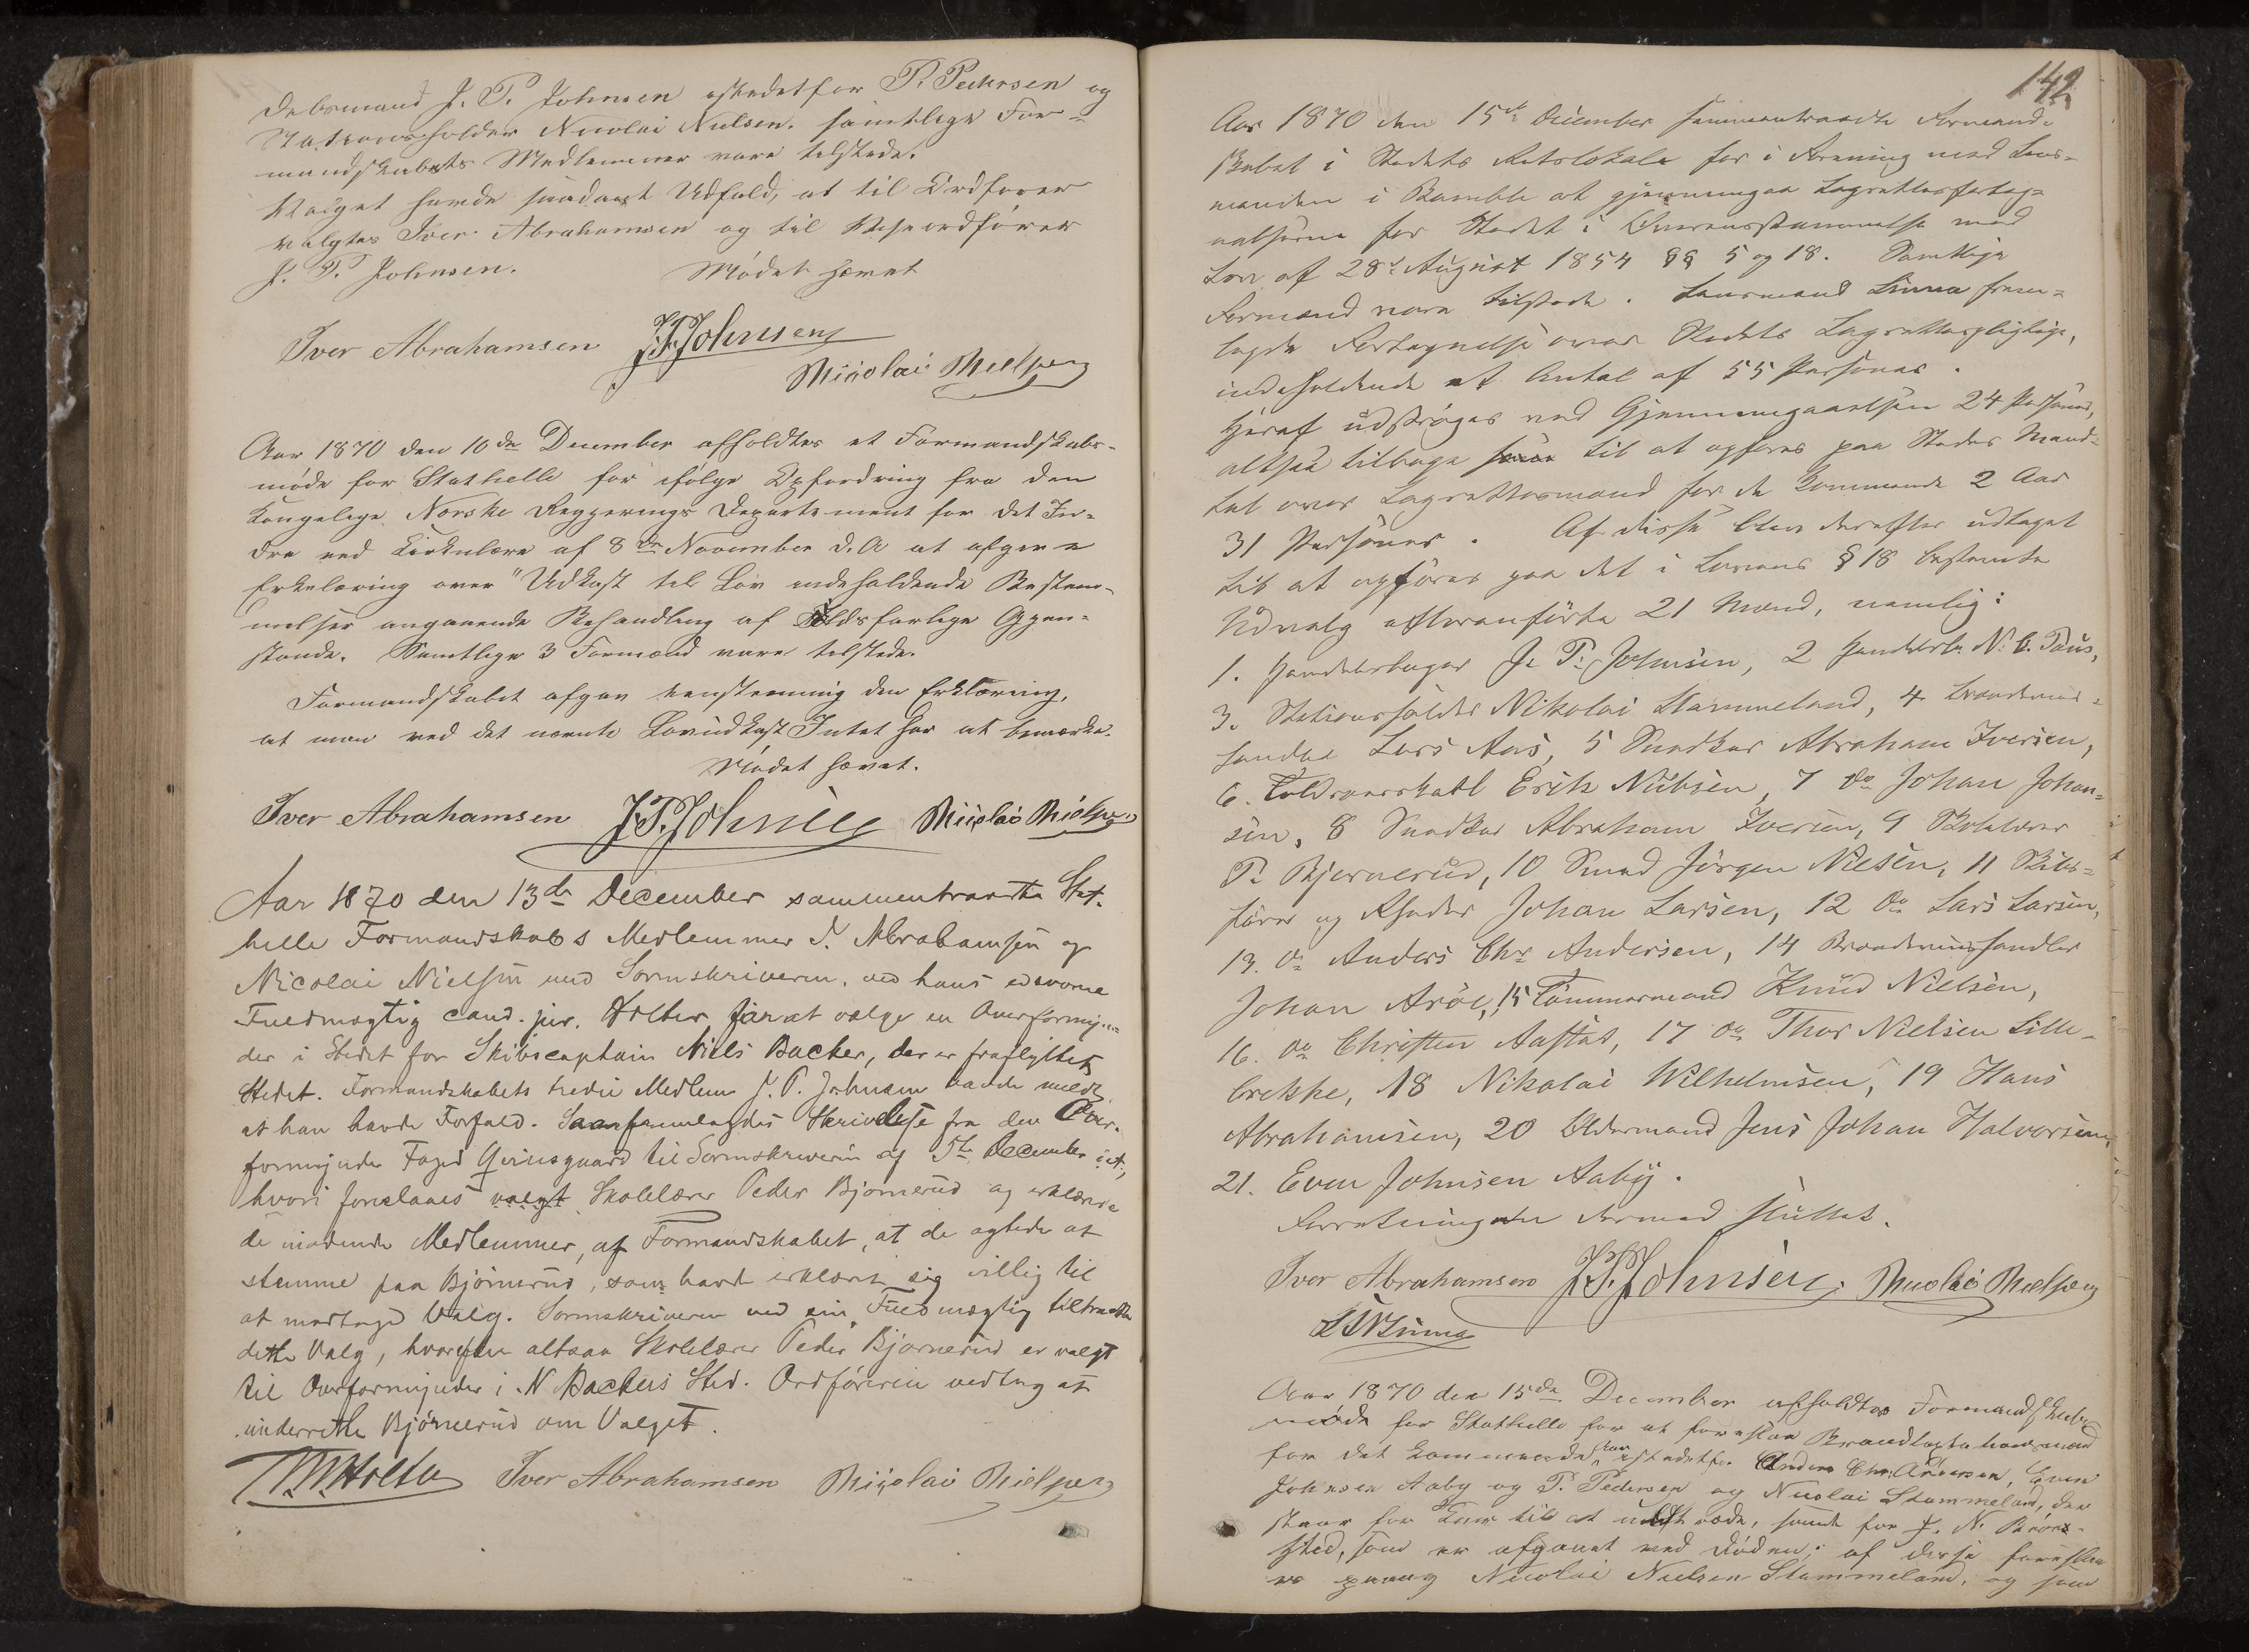 delsmand J. P. Johnsen istedetfor P. Pedersen og
Stationsholder Nicolai Nielsen. samtlige For-
mandskabets Medlemmer vare tilstede.
Valget havde saadant Udfald, at til Ordfører
valgtes Iver Abrahamsen og til Viseordfører
J. P. Johnsen. Mødet hævet
Iver Abrahamsen J.P. Johnsen
Nicolai Nielsen
Aar 1870 den 10de December afholdtes et Formandskabs-
møde for Stathelle for ifølge Opfordring fra den
Kongelige Norske Regjerings Departement for det In-
dre ved Cirkulære af 8de November d.A at afgive
Erkelæring over "Udkast til Lov indeholdende Bestem-
melser angaaende Behandling af Ildsfarlige Gjen-
stande. Samtlige 3 Formænd vare tilstede.
Formandskabet afgav eenstemmig den Erklæring,
at man ved det nævnte Lovudkast Intet har at bemærke.
Mødet hævet.
Iver Abrahamsen J.P. Johnsen Nicolai Nielsen
Aar 1870 den 13de December sammentraadte Stat-
helle Formandskabs Medlemmer I. Abrahamsen og
Nicolai Nielsen med Sorenskriveren, ved hans edsvorne
Fuldmægtig cand. jur. Holter for at vælge en Overformyn-
der i Stedet for Skibscaptain Niels Backer, der er fraflyttet
Stedet. Formandskabets tredie Medlem J. P. Johnsen havde meldt,
at han havde Forfald. Skrivelse fra den Over-
formynder Foged Qvinsgaard til Sorenskriveren af 5te December
hvori foreslaaes valgt Skolelærer Peder Bjørnerud og erklærede
de mødende Medlemmer, af Formandskabet, at de agtede at
stemme paa Bjørnerud, som havde erklært sig villig til
at modtage Valg. Sorenskriveren ved sin Fuldmægtig tiltraadte
dette Valg, hvorefter altsaa Skolelærer Peder Bjørnerud er valgt
til Overformynder i N Backers Sted. Ordføreren vedtog at
underrette Bjørnerud om Valget.
Holter Iver Abrahamsen Nicolai Nielsen
142
Aar 1870 den 15de December sammentraadte Formand-
skabet i Stedets Retslokale for i Forening med Lens-
manden i Bamble at gjennemgaa Lagrettesforteg-
nelserne for Stedet i Overensstemmelse med
Lov af 28de August 1854 §§ 5 og 18. Samtlige
Formænd vare tilstede. Lensmand Linna frem-
lagde Fortegnelse over Stedets Lagrettespligtige,
indeholdende et Antal af 55 Personer.
Heraf udstrøges ved Gjennemgaaelsen 24 Personer,
altsaa tilbage til at opføres paa Stedes Mand-
tal over Lagrettesmænd for de kommende 2 Aar
31 Personer. Af disse blev derefter udtaget
til at opføres paa det i Lovens § 18 bestemte
Udvalg efteranførte 21 Mænd, nemlig:
1. Handelsborger J. P. Johnsen, 2 Handelsb. N. C. Paus,
3. Stationsholder Nikolai Stammeland, 4 Brændeviins-
handler Lars Aas, 5 Snedker Abraham Iversen,
6. Toldroerskarl Erik Nielsen, 7 do Johan Johan-
sen, 8 Snedker Abraham Iversen, 9 Skolelærer
P. Bjørnerud, 10 Smed Jørgen Nilsen, 11 Skibs-
fører og Rheder Johan Larsen, 12 do Lars Larsen,
13. do Anders Chr Andersen, 14 Brændeviinshandler
Johan Arøe, 15 Tømmermand Knud Nielsen,
16. do Christen Aastat, 17 do Thor Nielsen Lille-
brekke, 18 Nikolai Wilhelmsen, 19 Hans
Abrahamsen, 20 Oldermand Jens Johan Halvorsen,
21. Even Johnsen Aaby.
Forretningen dermed sluttet.
Iver Abrahamsen J.P. Johnsen Nicolai Nielsen
Linna
Aar 1870 den 15de December afholdtes Formandskabs
møde for Stathelle for at foreslaa Brandtaxtationsmænd
for det kommende istedetfor Anders Chr. Andersen, Even
Johnsen Aaby og P. Pedersen og Nicolai Stammeland, der
staar for Tour til at udtræde, samt for J. N. Bron-
sted, som er afgaaet ved Døden; af disse foreslaa
es Nicolai Nielsen Stammeland, og som